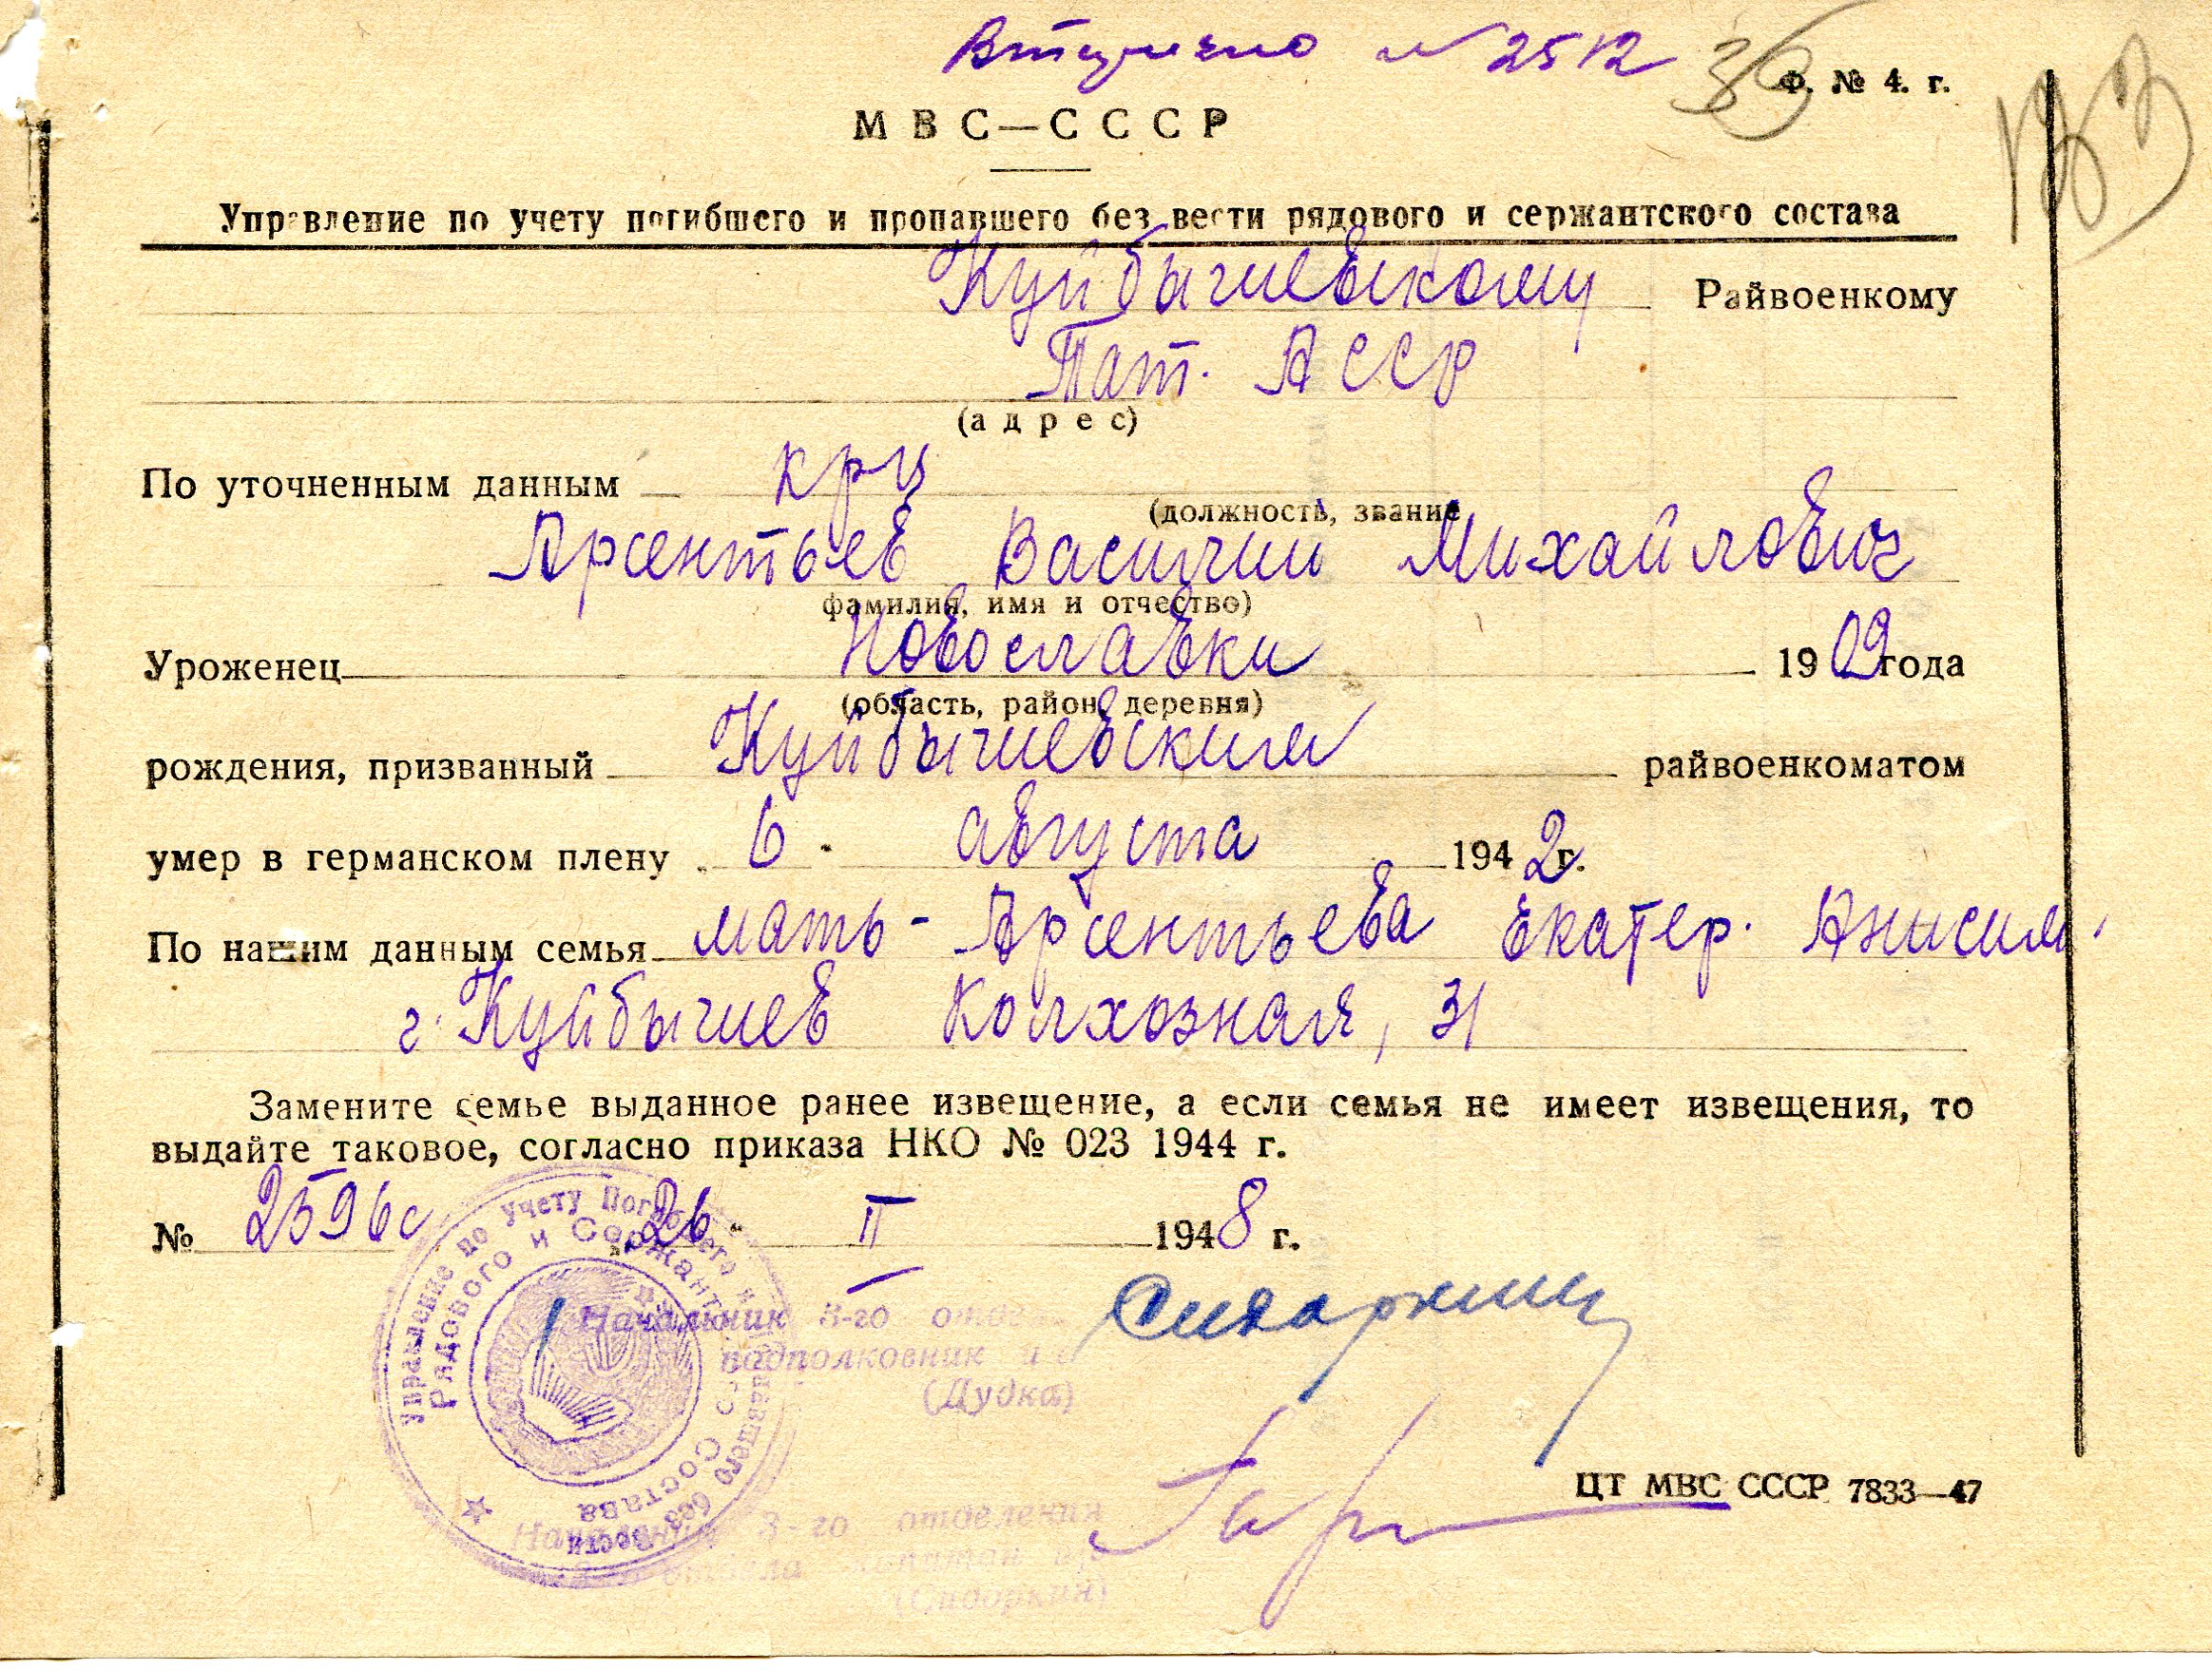 Вручено № 2512
Ф. № 4. г.
183
МВС—СССР
Управление по учету погибшего и пропавшего без вести рядового и сержантского состава
Куйбышевскому Райвоенкому
Тат. АССР
(адрес)
По уточненным данным кр-ц
(должность, звание
Арсентьев Василий Михайлович
фамилия, имя и отчество)
Уроженец Новославки 1909 года
(область, район, деревня)
рождения, призванный Куйбышевским райвоенкоматом
умер в германском плену 6. августа 1942 г.
По нашим данным семья мать - Арсентьева Екатер. Анисим.
г. Куйбышев Колхозная, 31
Замените семье выданное ранее извещение, а если семья не имеет извещения, то
выдайте таковое, согласно приказа НКО № 023 1944 г.
№ 2596с "26" II 1948 г.
Управление по учету Погибшего и Пропавшего без вести
Рядового и Сержантского Состава
Начальник 3-го отдела
подполковник и/с
(Дудка)
Сидоркин
Начальник 3-го отделения
отдела капитан а/с
(Сидоркин)
ЦТ МВС СССР 7833—47